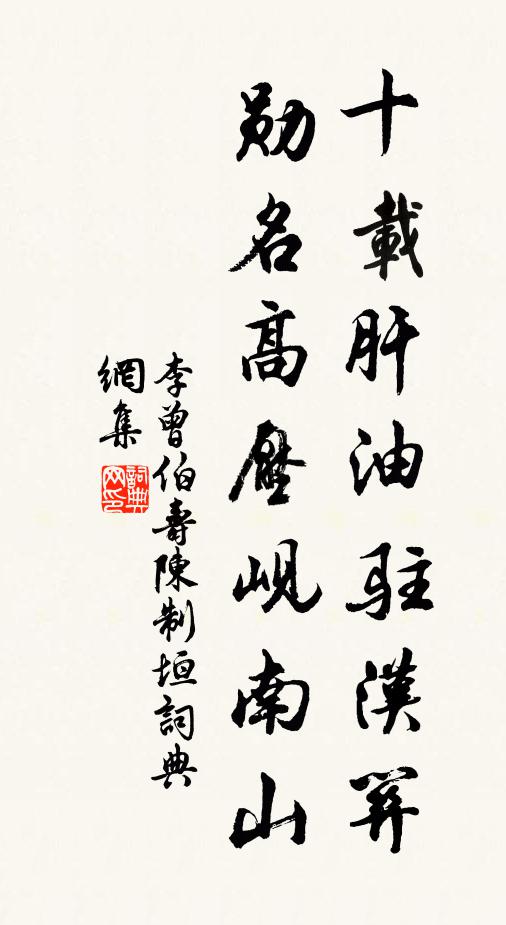 十載肝油駐漢關
勛名高壓峴南山
李曾伯壽陳制垣詞典
網集
詞典網印